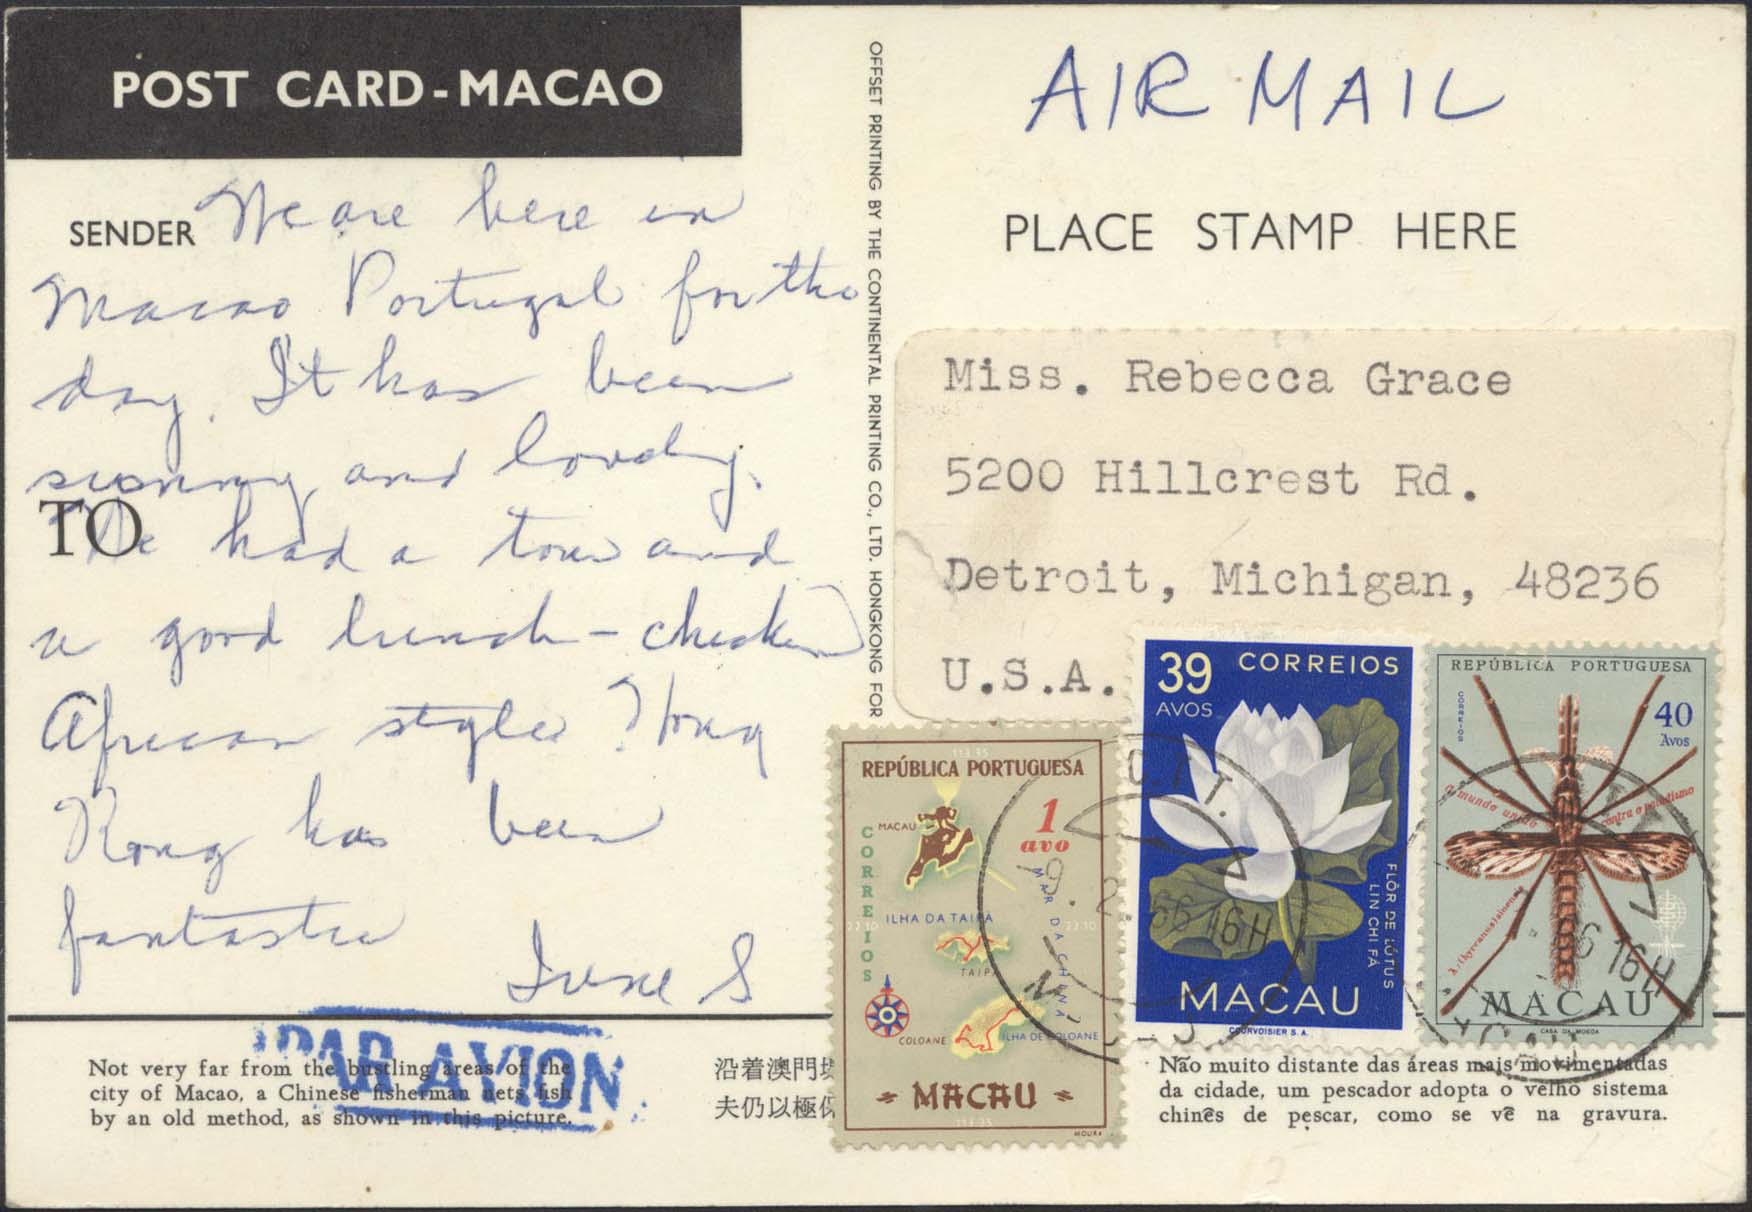 POST CARD-MACAO
SENDER
We are here in
Macao Portugal for the
day. It has been
sunny and lovely.
TO
We had a tour and
a good lunch - chicken
African style. Hong
Kong has been
fantastic
Irene S
PAR AVION
Not very far from the bustling areas of the
city of Macao, a Chinese fisherman nets fish
by an old method, as shown in this picture.
沿着澳門
夫仍以極
OFFSET PRINTING BY THE CONTINENTAL PRINTING CO., LTD. HONGKONG FOR
AIR MAIL
PLACE STAMP HERE
Miss. Rebecca Grace
5200 Hillcrest Rd.
Detroit, Michigan, 48236
U.S.A.
113.35
REPÚBLICA PORTUGUESA
1
avo
MACAU
CORREIOS
MAR DA CHINA
ILHA DA TAIPA
22.10
22.10
TAIPA
COLOANE
ILHA DE COLOANE
MACAU
113.35
MOURA
39 CORREIOS
AVOS
FLÔR DE LÓTUS
LIN CHI FÁ
MACAU
COURVOISIER S.A.
REPÚBLICA PORTUGUESA
CORREIOS
40
Avos
o mundo unido contra o paludismo
MACAU
CASA DA MOEDA
C.T.T.
9. 2. 66 16H
66 16H
Não muito distante das áreas mais movimentadas
da cidade, um pescador adopta o velho sistema
chinês de pescar, como se vê na gravura.